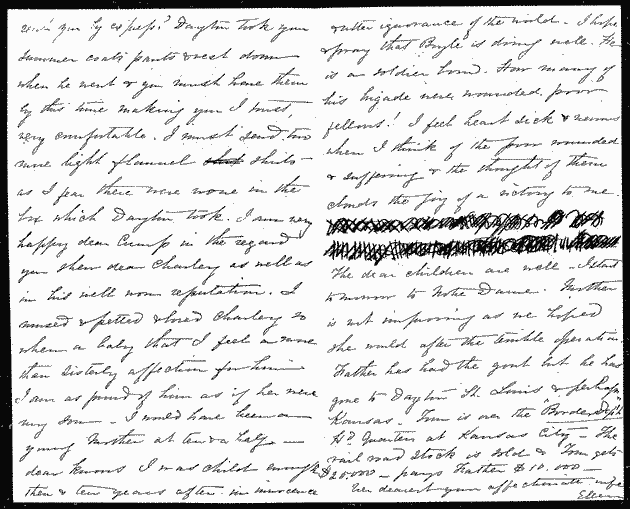 send you by express? Dayton took your
summer coats pants & vest down
when he went & you must have them
by this time making you I trust,
very comfortable. I must send two
more light flannel shirts
as I fear there were none in the
box which Dayton took. I am very
happy dear Cump in the regard
you show dear Charley as well as
in his well won reputation. I
nursed & petted & loved Charley so
when a baby that I feel a more
than sisterly affection for him
I am as proud of him as if he were
my son - I would have been a
young Mother at ten & a half -
dear knows I was child enough
then & ten years after in innocence
& utter ignorance of the world. I hope
& pray that "Boyle" is doing well. He
is a soldier born. How many of
his brigade were wounded, poor
fellows! I feel heart sick & nervous
when I think of the poor wounded
& suffering & the thought of them
clouds the joy of a victory to me
The dear children are well - I start
to morrow to Notre Dame. Mother
is not improving as we hoped
she would after the terrible operation.
Father has had the gout but he has
gone to Dayton St. Louis & perhaps
Kansas. Tom is over the "Border Dept"
Hd Quarters at Kansas City - The
rail road stock is sold & Tom gets
$20.000 - pays Father $10.000 -
Ever dearest your affectionate wife
Ellen